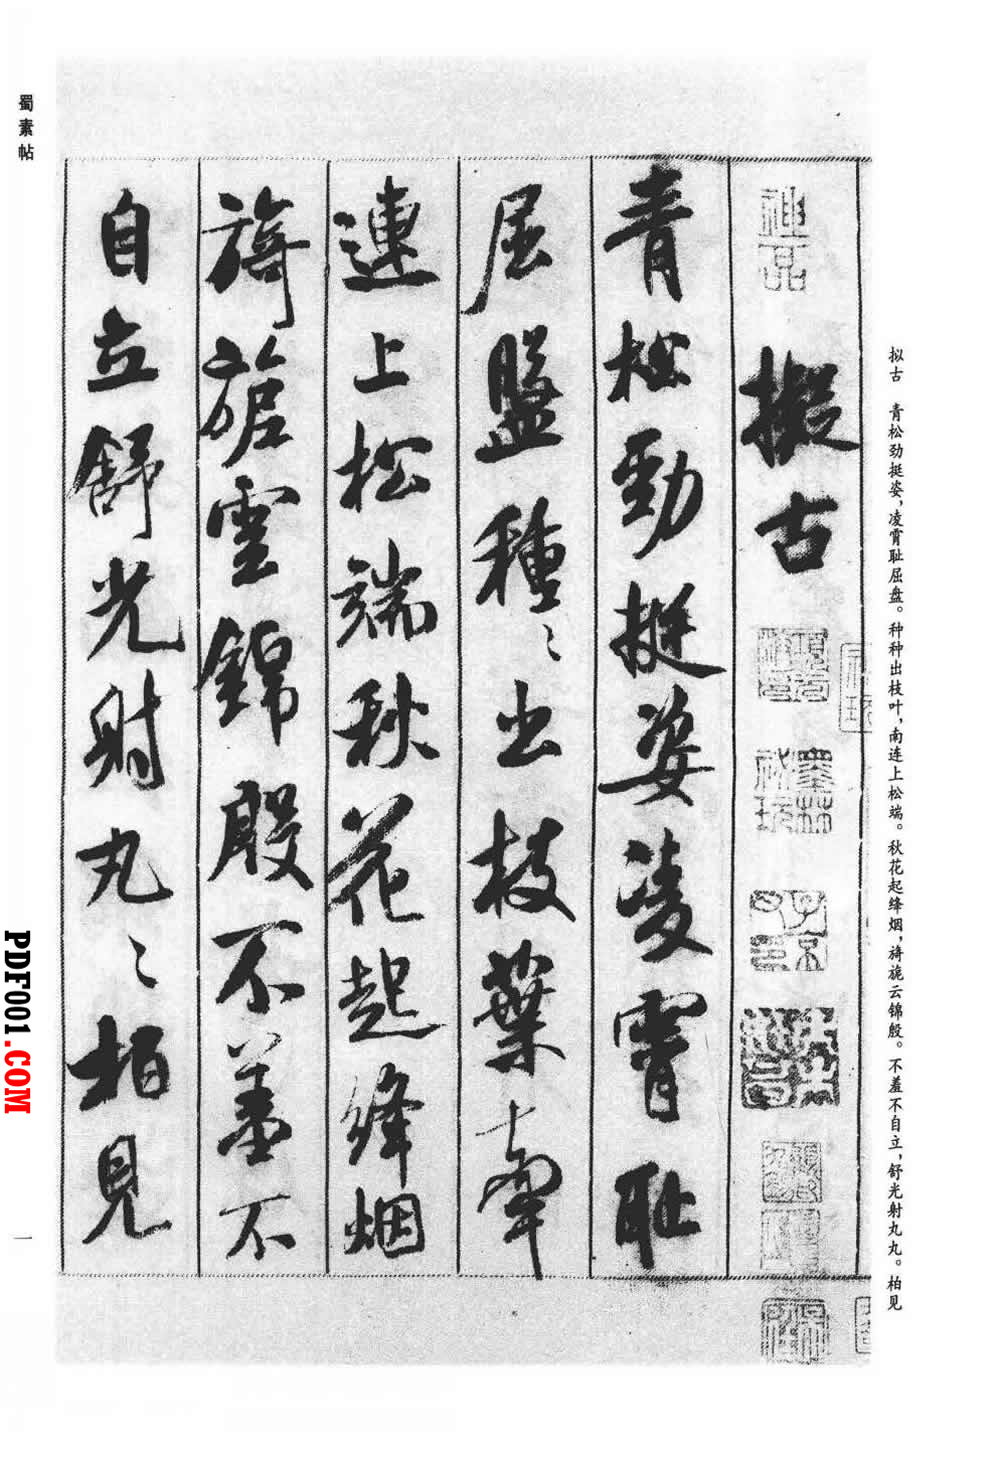 拟古　青松劲挺姿，凌霄耻屈盘。种种出枝叶，南连上松端。秋花起绛烟，旖旎云锦殷。不羞不自立，舒光射丸丸。柏见
神品
擬古
青松勁挺姿凌霄耻
屈盤種〻出枝葉牽
連上松端秋花起絳烟
旖旎雲錦殷不羞不
自立舒光射丸〻柏見
蜀素帖
一
PDF001.COM